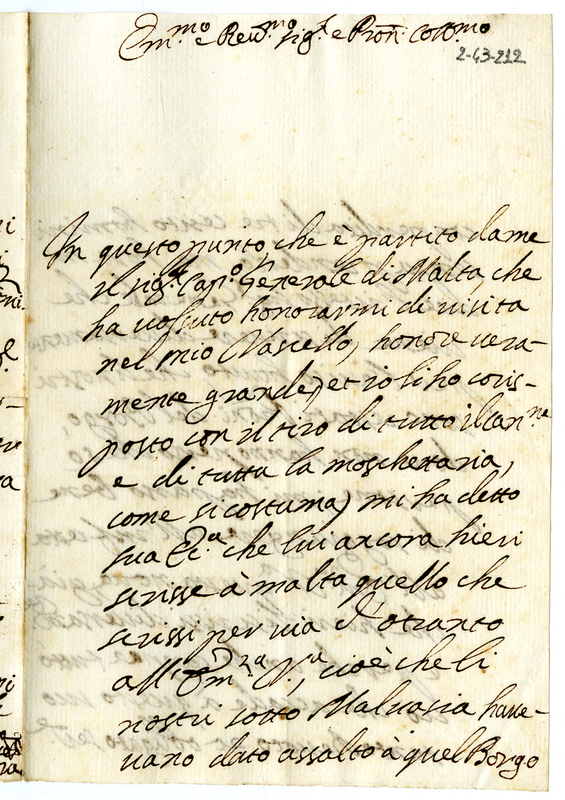 Em.mo e Rev.mo sig.r e Pron Coll.mo
2-43-212
In questo punto che è partito da me
il sig.r Cap.o Generale di Malta che
ha uoluto honorarmi di visita
nel mio Vascello, honore uera-
mente grande, et io li ho coris-
posto con il tiro di tutto il can.ne
e di tutta la moschettaria,
come si costuma, mi ha detto
sua Ec.a che lui ancora hieri
scrisse à malta quello che
scrissi per uia d'otranto
all'Em.za V.a, cioè che li
nostri sotto Maluasia haue-
uano dato assalto à quel Borgo